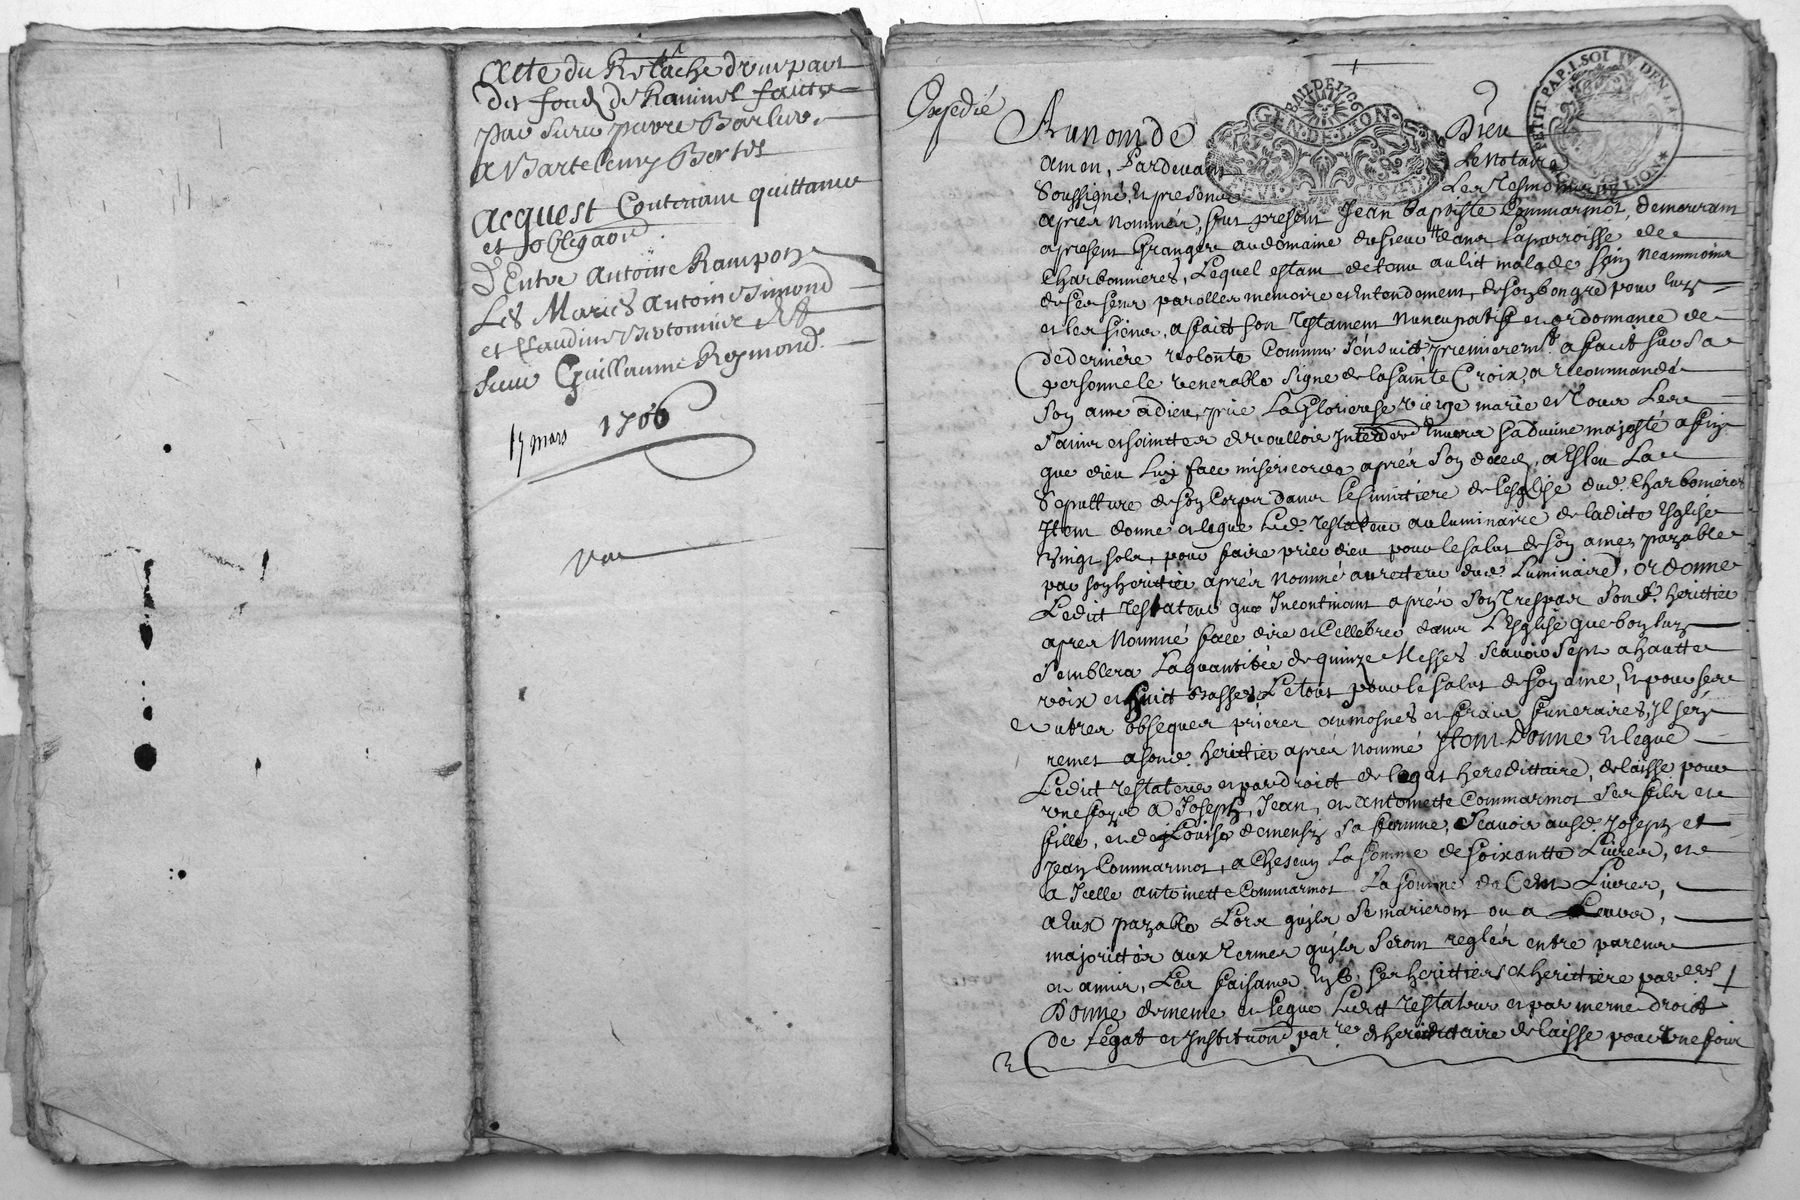 Acte du Relache d'une part
des fonds de Raninel faitte
par sieur pierre Barlur
a Bartelemy Bertet
acquest Contenant quittance
et obliga͠on
D'Entre antoine Rampon
Les Mariés antoine simond
et Claudine
sieur Guillaume Reymond.
17 mars 1706
Expedié
Au nom de Dieu
BAIL DE 1706
GEN. DE LION
PETIT PAP. I. SOL IV DEN.
GEN. DE LION
amen, Pardevant Le Notaire
Soussigné, En presence Les Tesmoins
apres Nommés, fut present Jean baptiste Commarmot, demeurant
apresent Granger au domaine du sieur dans La parroisse de
Charbonnieres, Lequel estant detenu au lict malade sain Neammoins
de ses sens parolles memoire et Entendement, de son bon gré pour luy
et les siens, a faict son Testament Nuncupatif et ordonnance de
de derniere volonte Comme s'ensuict, premieremt. a faict sur sa
personne le venerable signe de la sainte Croix, a recommandé
son ame a dieu, prie La Glorieuse vierge marie et Tous Les
saints et sainttes de voulloir Interceder Envers sa divine majesté affin
que dieu Luy fasse misericorde apres son deced, a Esleu La
Sepulture de son Corps dans le Cimittiere de l'esglise dud. Charbonieres
Item donne et legue Led. Testateur au luminaire de ladicte Esglise
Vingt sols, pour faire prier dieu pour le salut de son ame, payable
par son herittier apres nommé au recteur dud. Luminaire, ordonne
Ledict Testateur que Incontinant apres son Trespas sond. herittier
apres Nommé fasse dire et Cellebrer dans L'Esglise que bon luy
semblera La quantitée de quinze Messes scavoir sept a hautte
voix et huict basses, Le tout pour le salut de son ame, Et pour ses
autres obseques prieres aumosnes et frais funeraires, Il s'en
remet a sond. herittier apres nommé Item Donne Et legue
Ledict Testateur et par droict de legat hereditaire, delaisse pour
une foys a Joseph, Jean, et antoinette Commarmot ses fils et
fille, et de Louise demensy sa femme, scavoir ausd. Joseph et
Jean Commarmot, a Chescun La somme de soixantte Livres, et
a Icelle antoinette Commarmot La somme de Cent Livres,
a Eux payable Lors qu'ils se marieront ou a Leurs
majorittés aux termes qu'ils seront reglés entre parents
et amis, Les faisants ses herittiers & herittiere par
Donne de meme et legue Ledict Testateur et par meme droict
de Legat et Institution parre. & hereditaire delaisse pour une fois